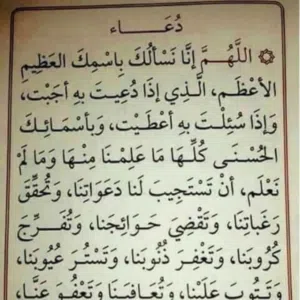 دُعَــــاء
اللَّهُمَّ إِنَّا نَسْأَلُكَ بِاسْمِكَ العَظِيمِ
الأَعْظَمِ، الَّذِي إِذَا دُعِيتَ بِهِ أَجَبْتَ،
وَإِذَا سُئِلْتَ بِهِ أَعْطَيْتَ، وَبِأَسْمَائِكَ
الحُسْنَى كُلِّهَا مَا عَلِمْنَا مِنْهَا وَمَا لَمْ
نَعْلَم، أَنْ تَسْتَجِيبَ لَنَا دَعَوَاتِنَا، وَتُحَقِّقَ
رَغَبَاتِنَا، وَتَقْضِيَ حَوَائِجَنَا، وَتُفَــرِّجَ
كُرُوبَنَا، وَتَغْفِرَ ذُنُوبَنَا، وَتَسْتُرَ عُيُوبَنَا،
وَتَتُوبَ عَلَيْنَا، وَتُعَافِيَنَا وَتَعْفُوَ عَنَّا،